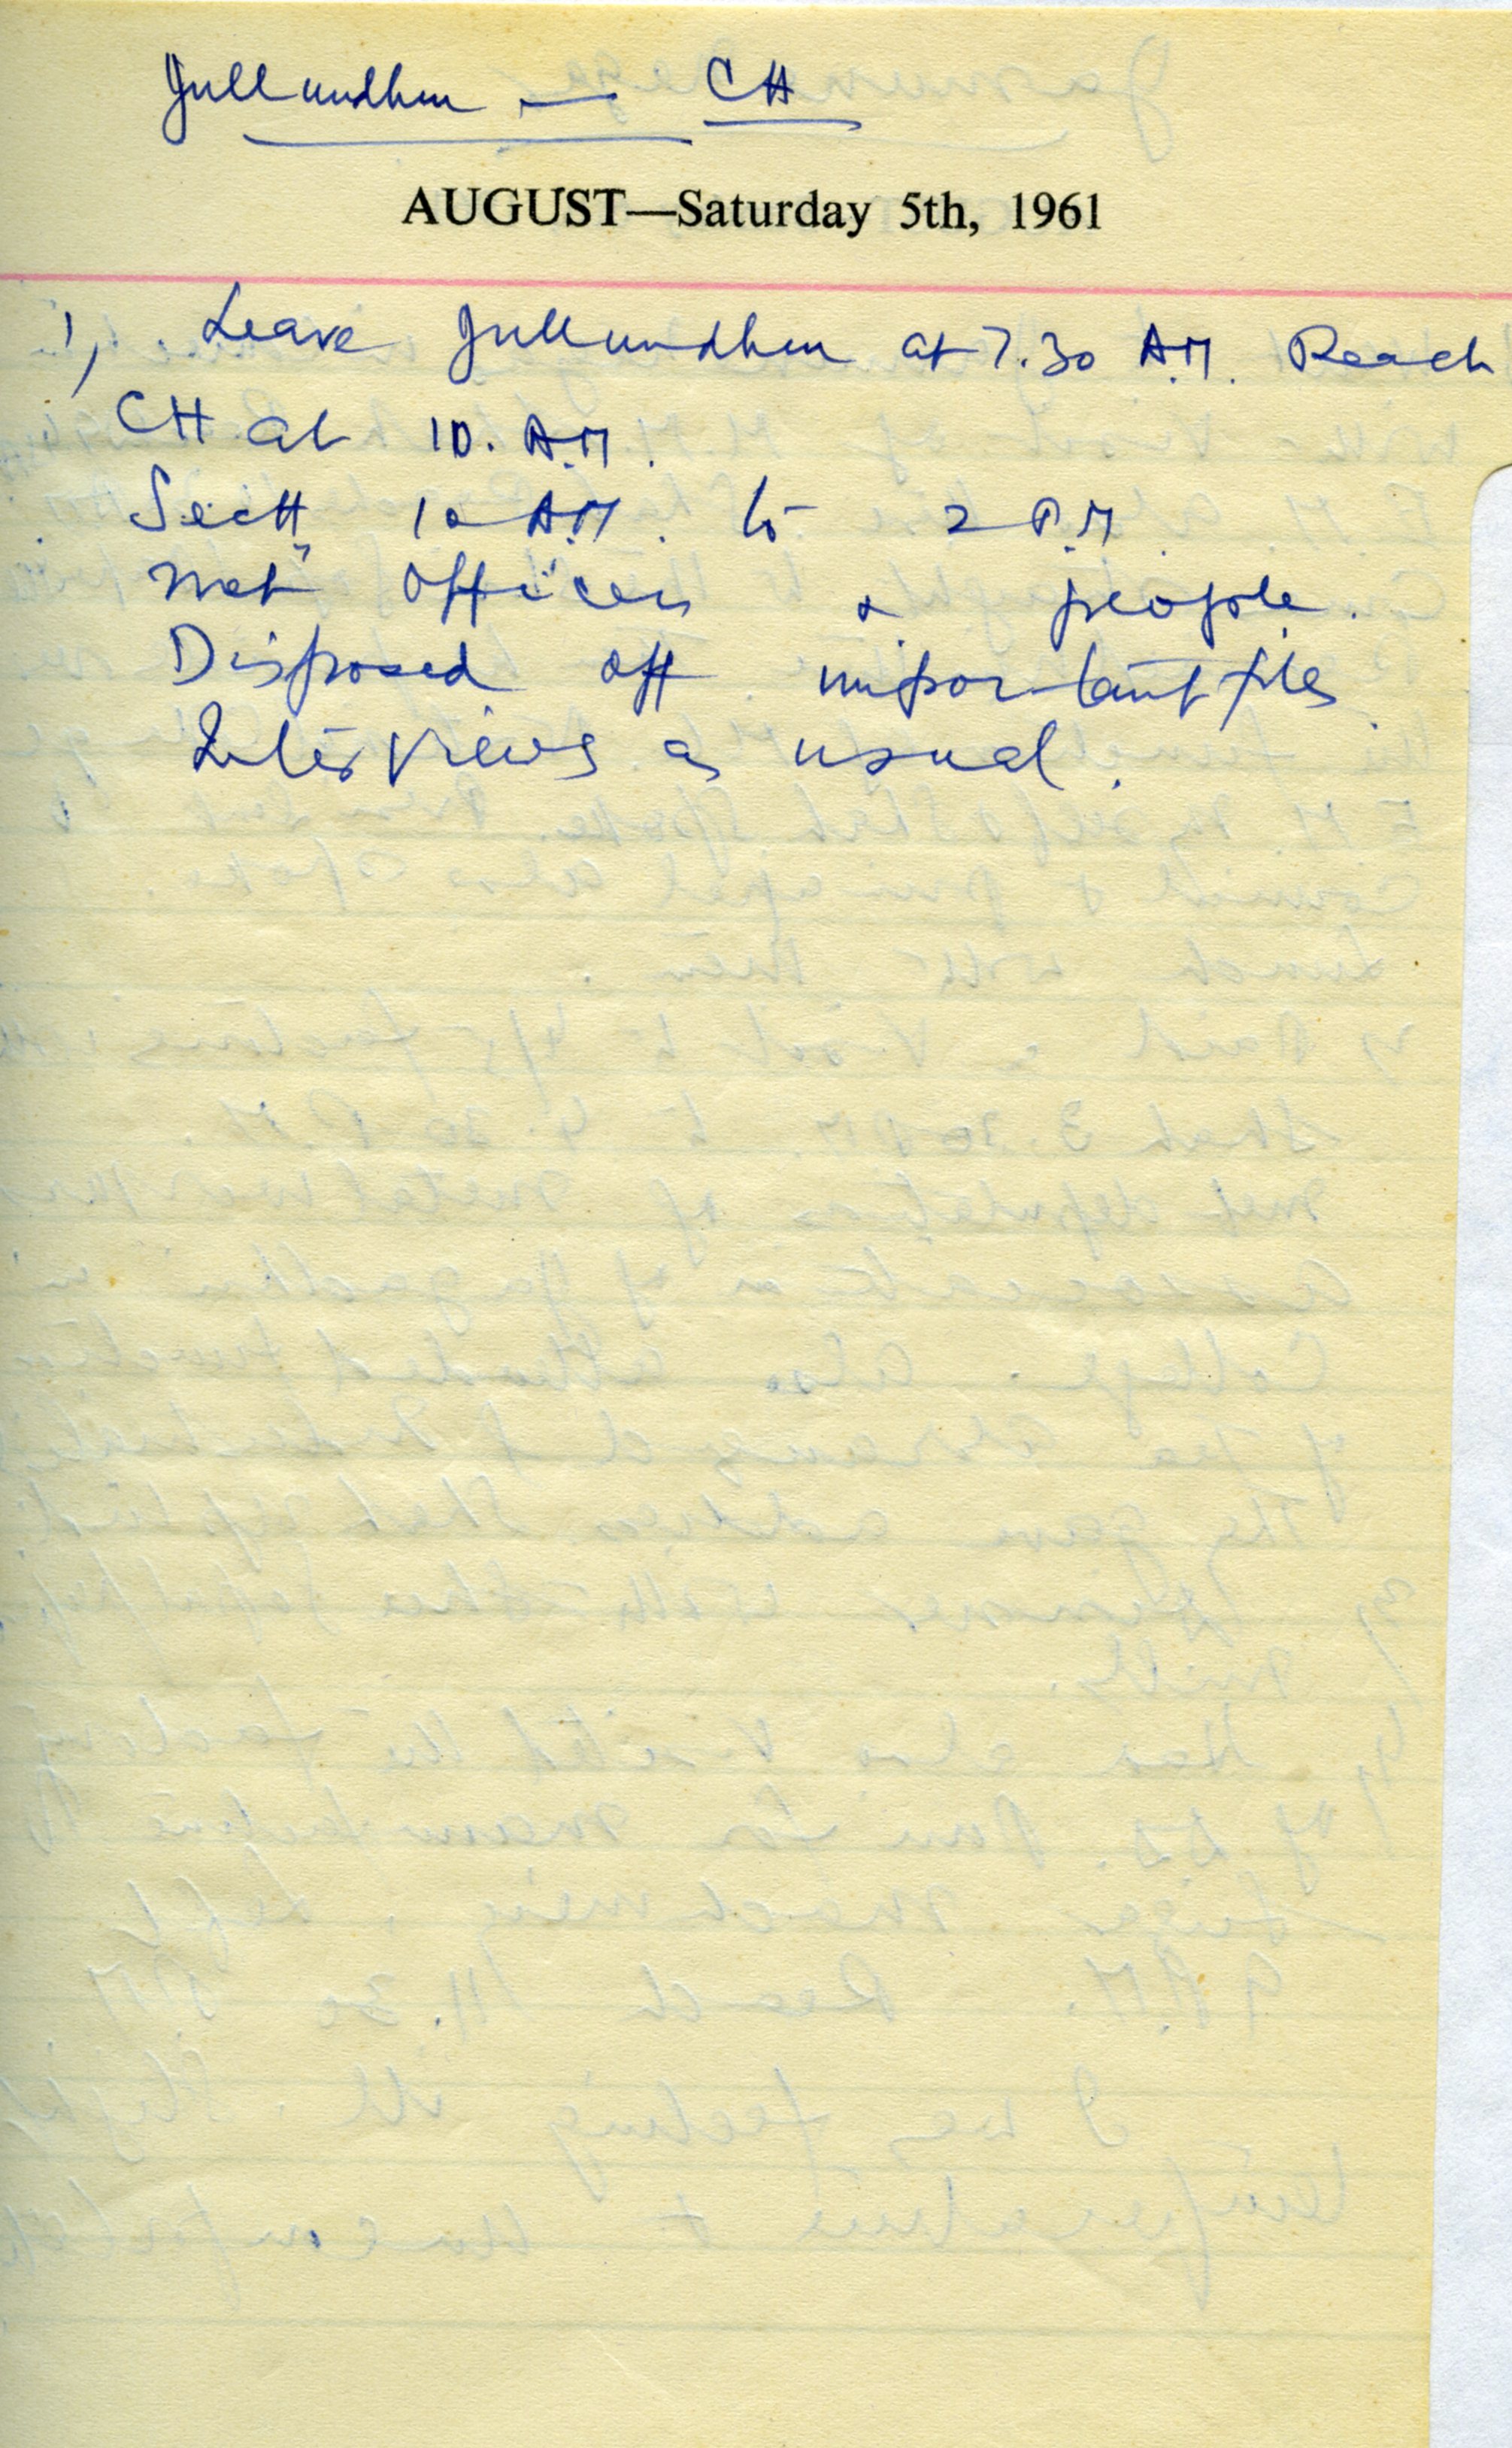 Jullundhur — CH
AUGUST—Saturday 5th, 1961
1, Leave Jullundhur at 7.30 A.M. Reach
CH at 10. A.M.
Sectt, 10 A.M. to 2 P.M.
Met officers & people.
Disposed off important files.
Interviews as usual.